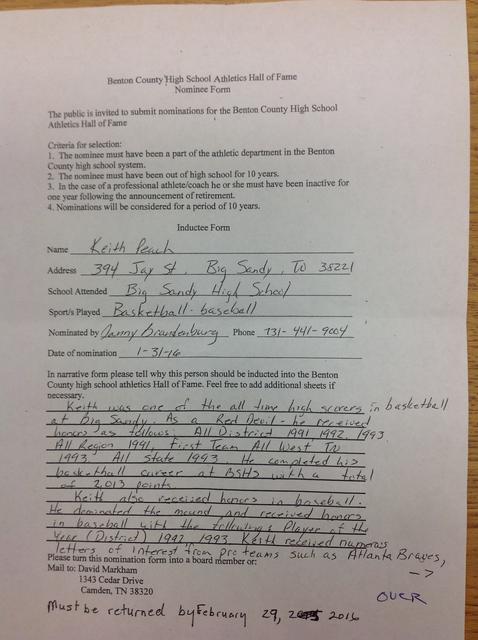 Benton County High School Athletics Hall of Fame
Nominee Form
The public is invited to submit nominations for the Benton County High School
Athletics Hall of Fame
Criteria for selection:
1. The nominee must have been a part of the athletic department in the Benton
County high school system.
2. The nominee must have been out of high school for 10 years.
3. In the case of a professional athlete/coach he or she must have been inactive for
one year following the announcement of retirement.
4. Nominations will be considered for a period of 10 years.
Inductee Form
Name Keith Peach
Address 394 Jay St, Big Sandy, TN 38221
School Attended Big Sandy High School
Sport/s Played Basketball - baseball
Nominated by Danny Brandenburg Phone 731-441-9004
Date of nomination 1-31-16
In narrative form please tell why this person should be inducted into the Benton
County high school athletics Hall of Fame. Feel free to add additional sheets if
necessary.
Keith was one of the all time high scorers in basketball
at Big Sandy. As a Red Devil - he received
honors as follows: All District 1991 1992, 1993
All Region 1991, First Team All West TN
1993, All State 1993. He completed his
basketball career at BSHS with a total
of 2,013 points.
Keith also received honors in baseball.
He dominated the mound and received honors
in baseball with the following: Player of the
Year (District) 1992, 1993. Keith received numerous
letters of interest from pro teams such as Atlanta Braves,
Please turn this nomination form into a board member or:
Mail to: David Markham
1343 Cedar Drive
Camden, TN 38320
-->
OVER
Must be returned by February 29, 2016